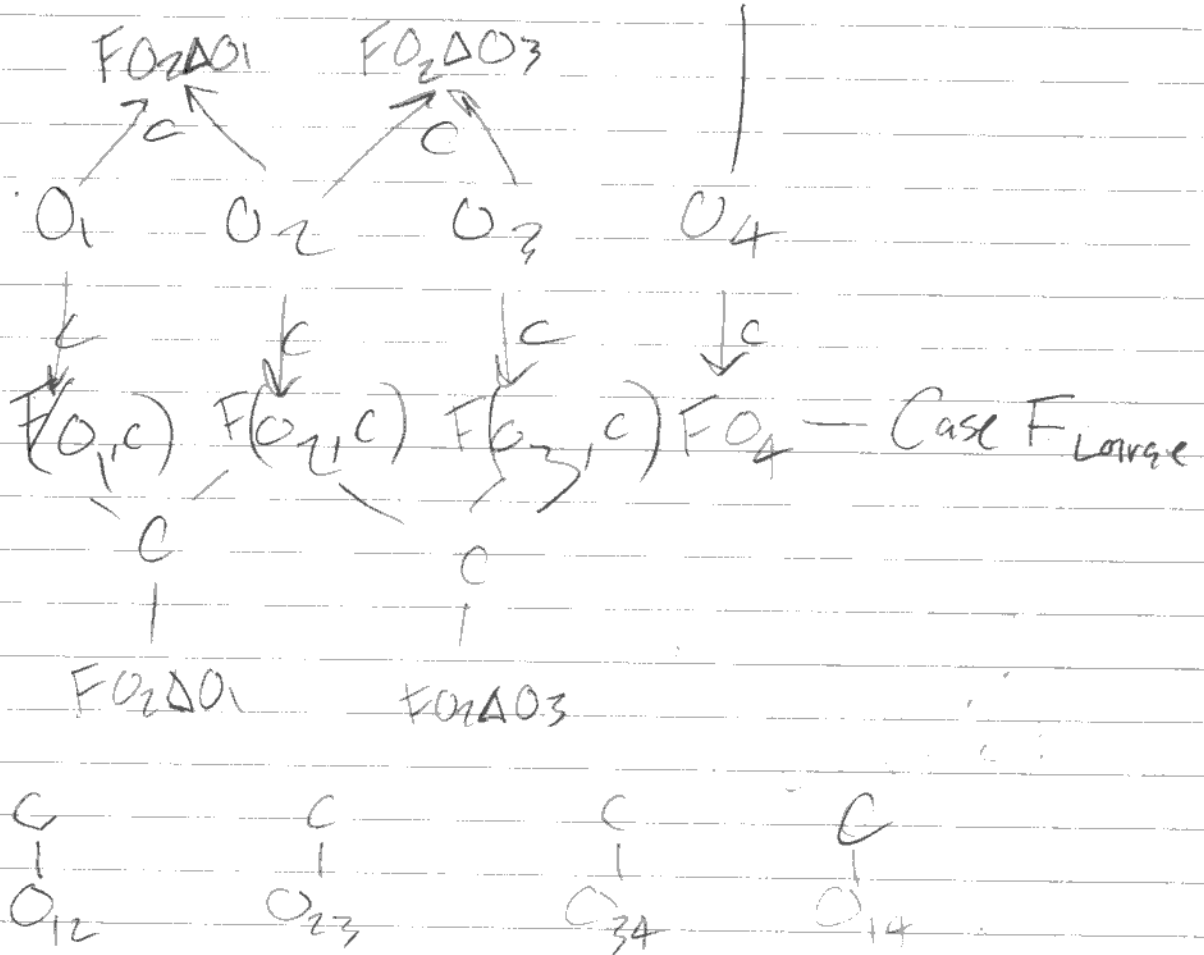 FO₂ΔO₁ FO₂ΔO3
C C
O₁ O₂ O₃ O₄
C C C C
F(O₁,C) F(O₂,C) F(O₃,C) FO₄ — Case F
C C
FO₂ΔO₁ FO₂ΔO3
C C C C
O₁₂ O₂₃ O₃₄ O₁₄